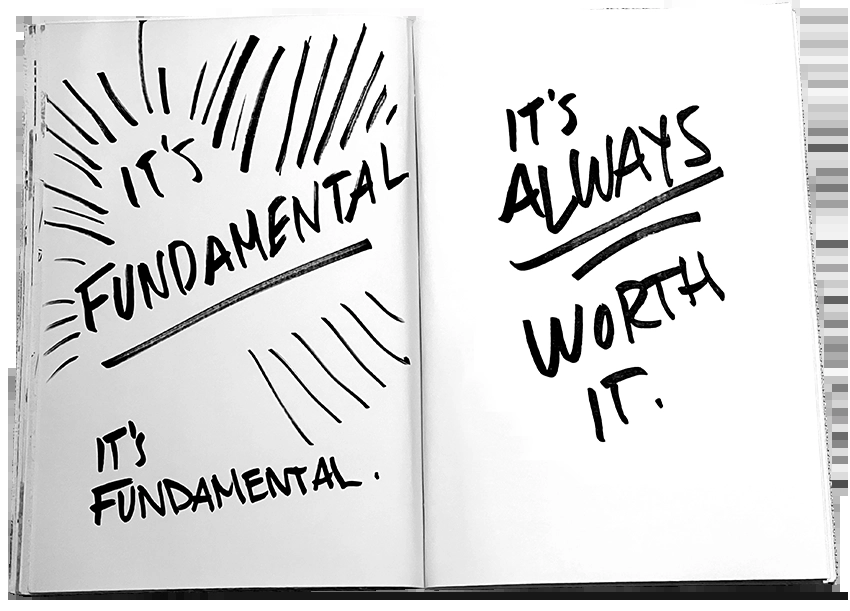 IT'S
FUNDAMENTAL
IT'S
FUNDAMENTAL.
IT'S
ALWAYS
WORTH
IT.